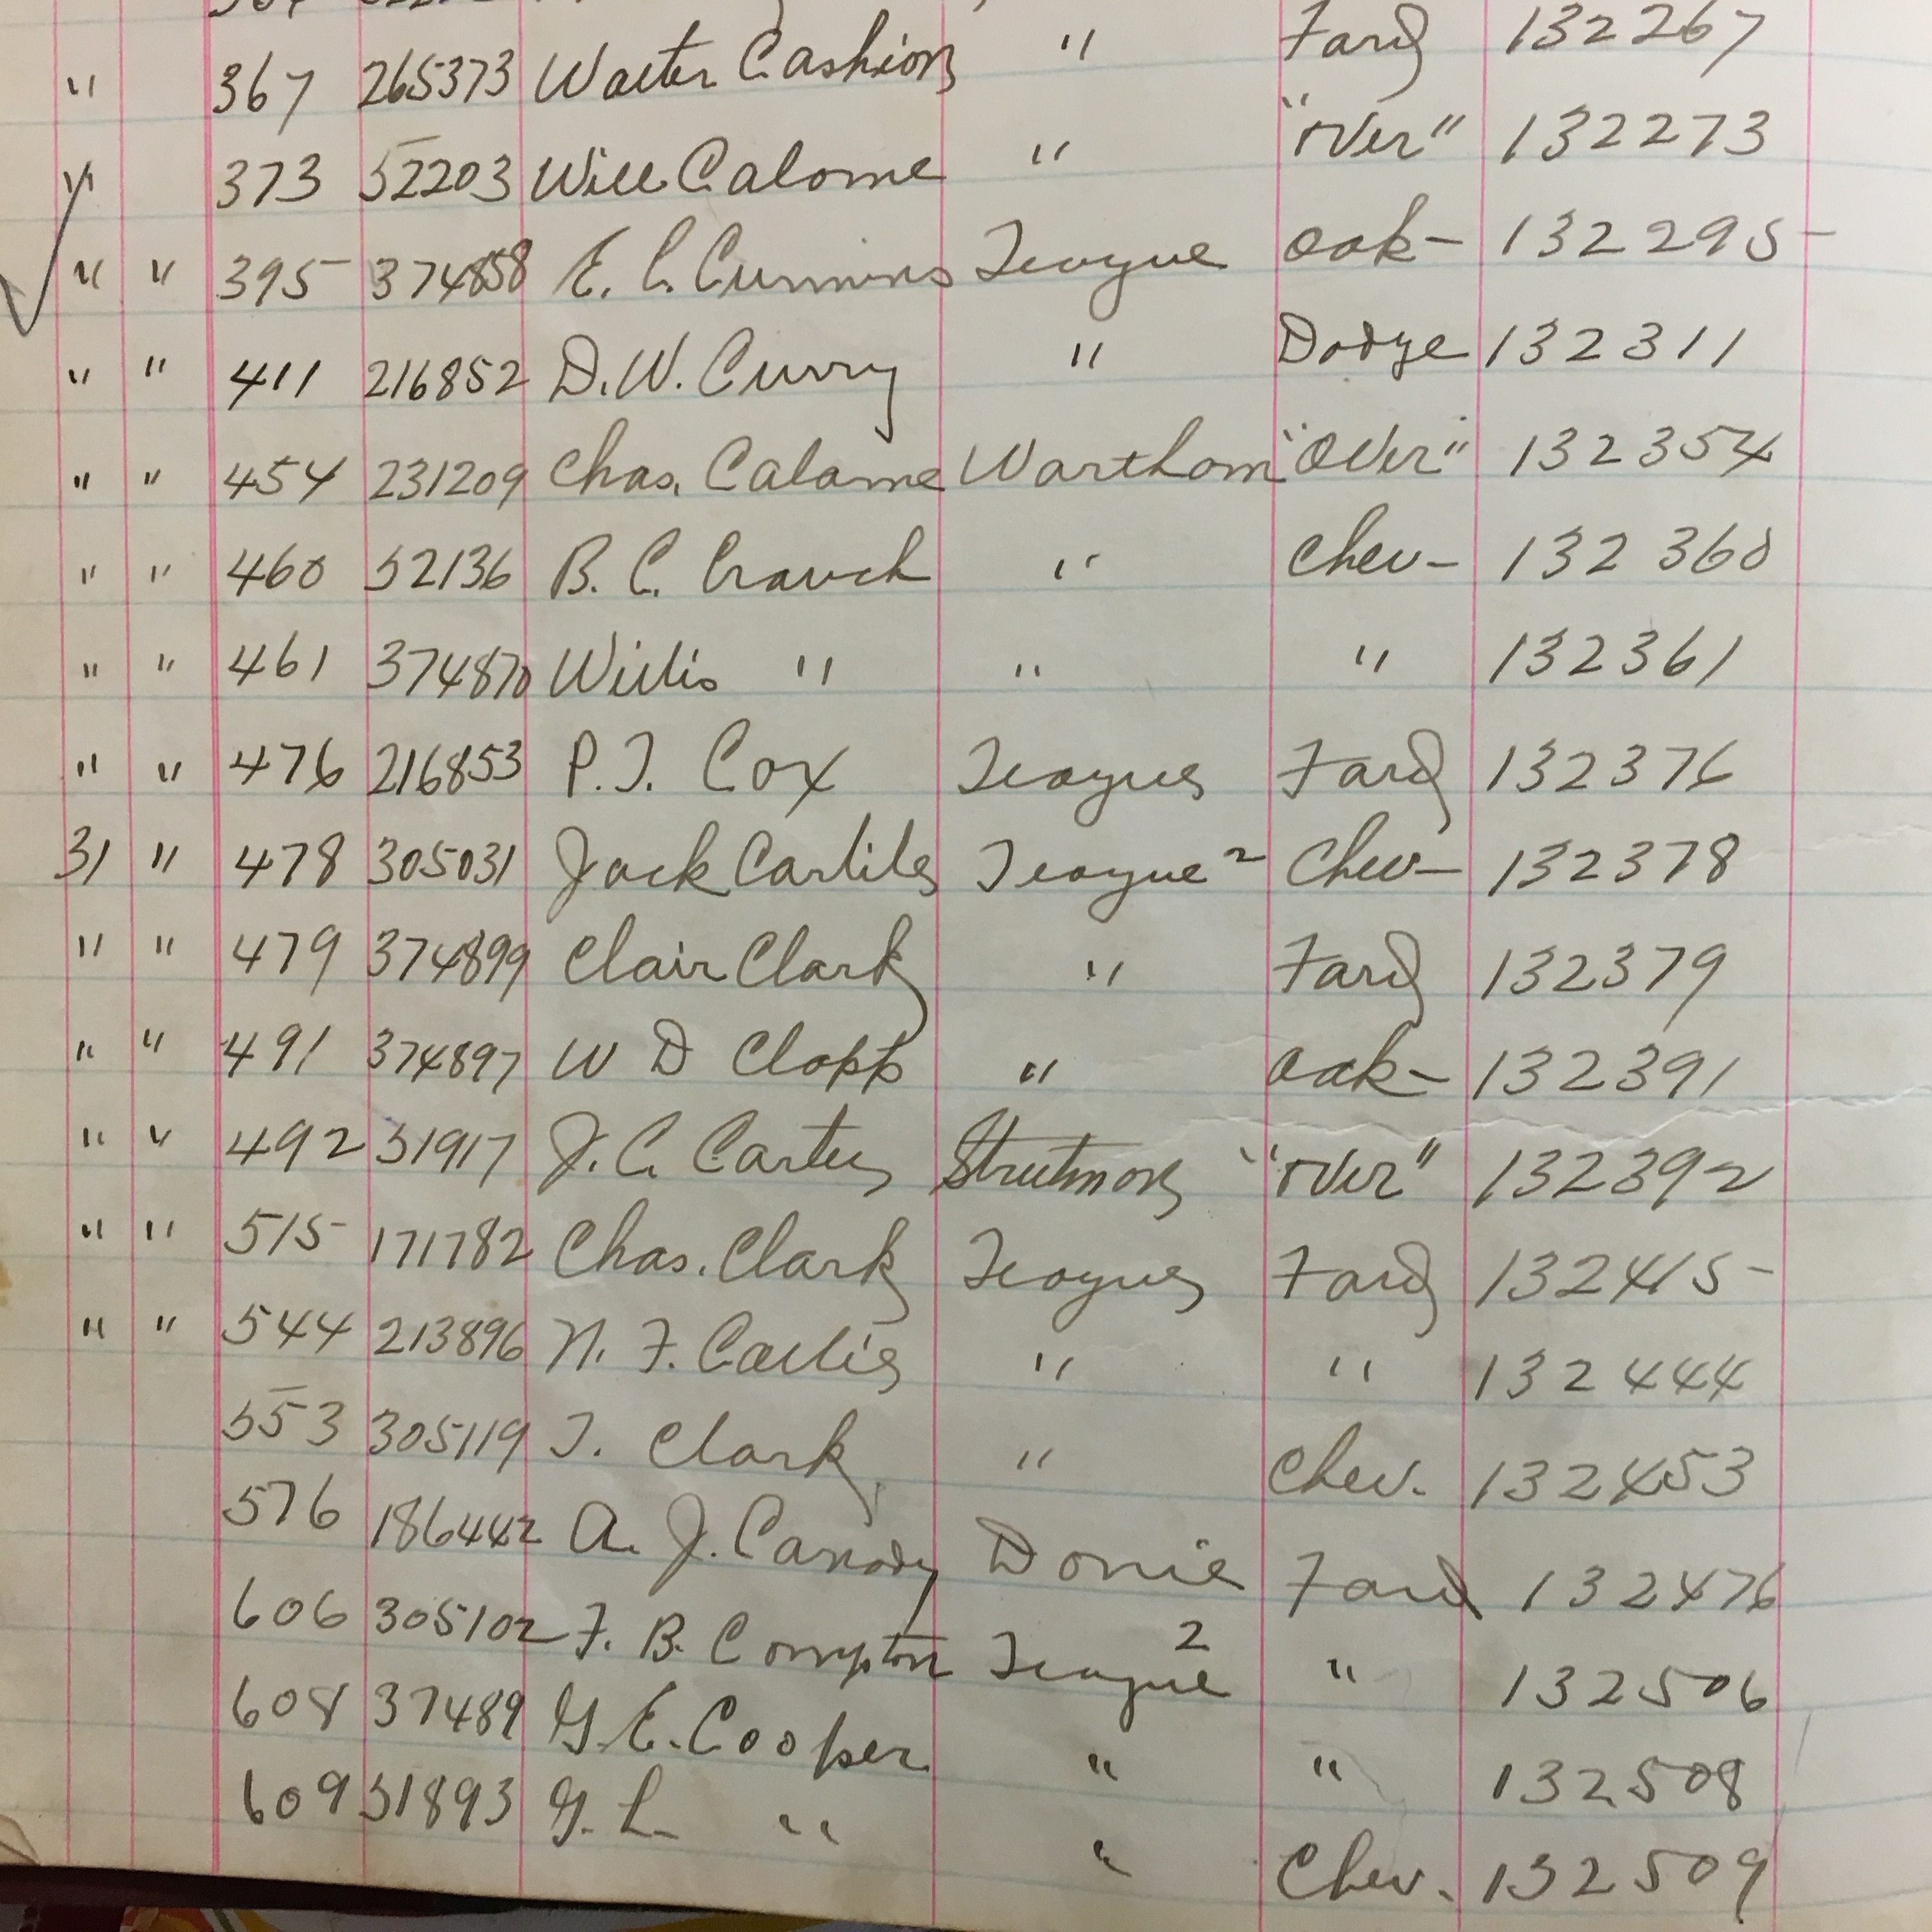 " 367 265373 Walter Cashion " Ford 132267
" 373 52203 Will Calame " "over" 132273
" " 395 374858 E. C. Cummins Teague Oak- 132295
" " 411 216852 D. W. Curry " Dodge 132311
" " 454 231209 Chas. Calame Wortham "Over" 132354
" " 460 52136 B. C. Crouch " Chev- 132360
" " 461 374870 Willis " " " 132361
" " 476 216853 P. T. Cox Teague Ford 132376
31 " 478 305031 Jack Carlile Teague 2 Chev- 132378
" " 479 374899 Clair Clark " Ford 132379
" " 491 374897 W D Clopp " Oak- 132391
" " 492 51917 J. C. Carter Streetmon "over" 132392
" " 515 171782 Chas. Clark Teague Ford 132415
" " 544 213896 N. F. " " 132444
553 305119 T. Clark " Chev. 132453
576 186442 A. J. Canady Donie Ford 132476
606 305102 F. B. Compton Teague 2 " 132506
608 37489 G. E. Cooper " " 132508
609 51893 G. L. " " Chev. 132509